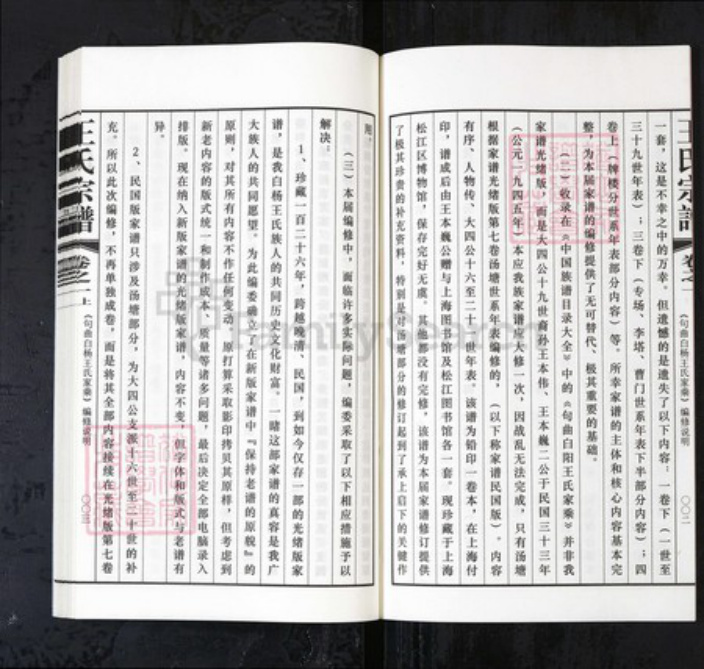 王氏宗譜
卷之一
《句曲白杨王氏家乘》编修说明
〇〇二
一套，这是不幸之中的万幸。但遗憾的是遗失了以下内容：一卷下（一世至
三十九世年表）；三卷下（专场、李塔、曹门世系年表下半部分内容）；四
卷上（牌楼分世系年表部分内容）等。所幸家谱的主体和核心内容基本完
整，为本届家谱的编修提供了无可替代、极其重要的基础。
（二）收录在《中国族谱目录大全》中的《句曲白阳王氏家乘》并非我
家谱光绪版，而是大四公十九世裔孙王本伟、王本巍二公于民国三十三年
（公元一九四五年）本应我族家谱六十年大修一次，因战乱无法完成，只有汤塘
根据家谱光绪版第七卷汤塘世系年表编修的，（以下称家谱民国版）。内容
有序、人物传、大四公十六至二十世年表。该谱为铅印一卷本，在上海付
印，谱成后由王本巍公赠与上海图书馆及松江图书馆各一套。现珍藏于上海
松江区博物馆，保存完好无虞。其他都没有完修，该谱为本届家谱修订提供
了极其珍贵的补充资料，特别是对汤塘部分的修订起到了承上启下的关键作
用。
（三）本届编修中，面临许多实际问题，编委采取了以下相应措施予以
解决：
1、珍藏一百二十六年，跨越晚清、民国，到如今仅存一部的光绪版家
谱，是我白杨王氏族人的共同历史文化财富。一睹这部家谱的真容是我广
大族人的共同愿望。为此编委确立了在新版家谱中『保持老谱的原貌』的
原则，对其所有内容不作任何变动。原打算采取影印拷贝其原样，但考虑到
新老内容的版式统一和制作成本、质量等诸多问题，最后决定全部电脑录入
排版。现在纳入新版家谱的光绪版家谱，内容不变，但字体和版式与老谱有
异。
2、民国版家谱只涉及汤塘部分，为大四公支派十六世至二十世的补
充。所以此次编修，不再单独成卷，而是将其全部内容接续在光绪版第七卷
王氏宗譜
卷之一上
《句曲白杨王氏家乘》编修说明
〇〇三
FamilySearch